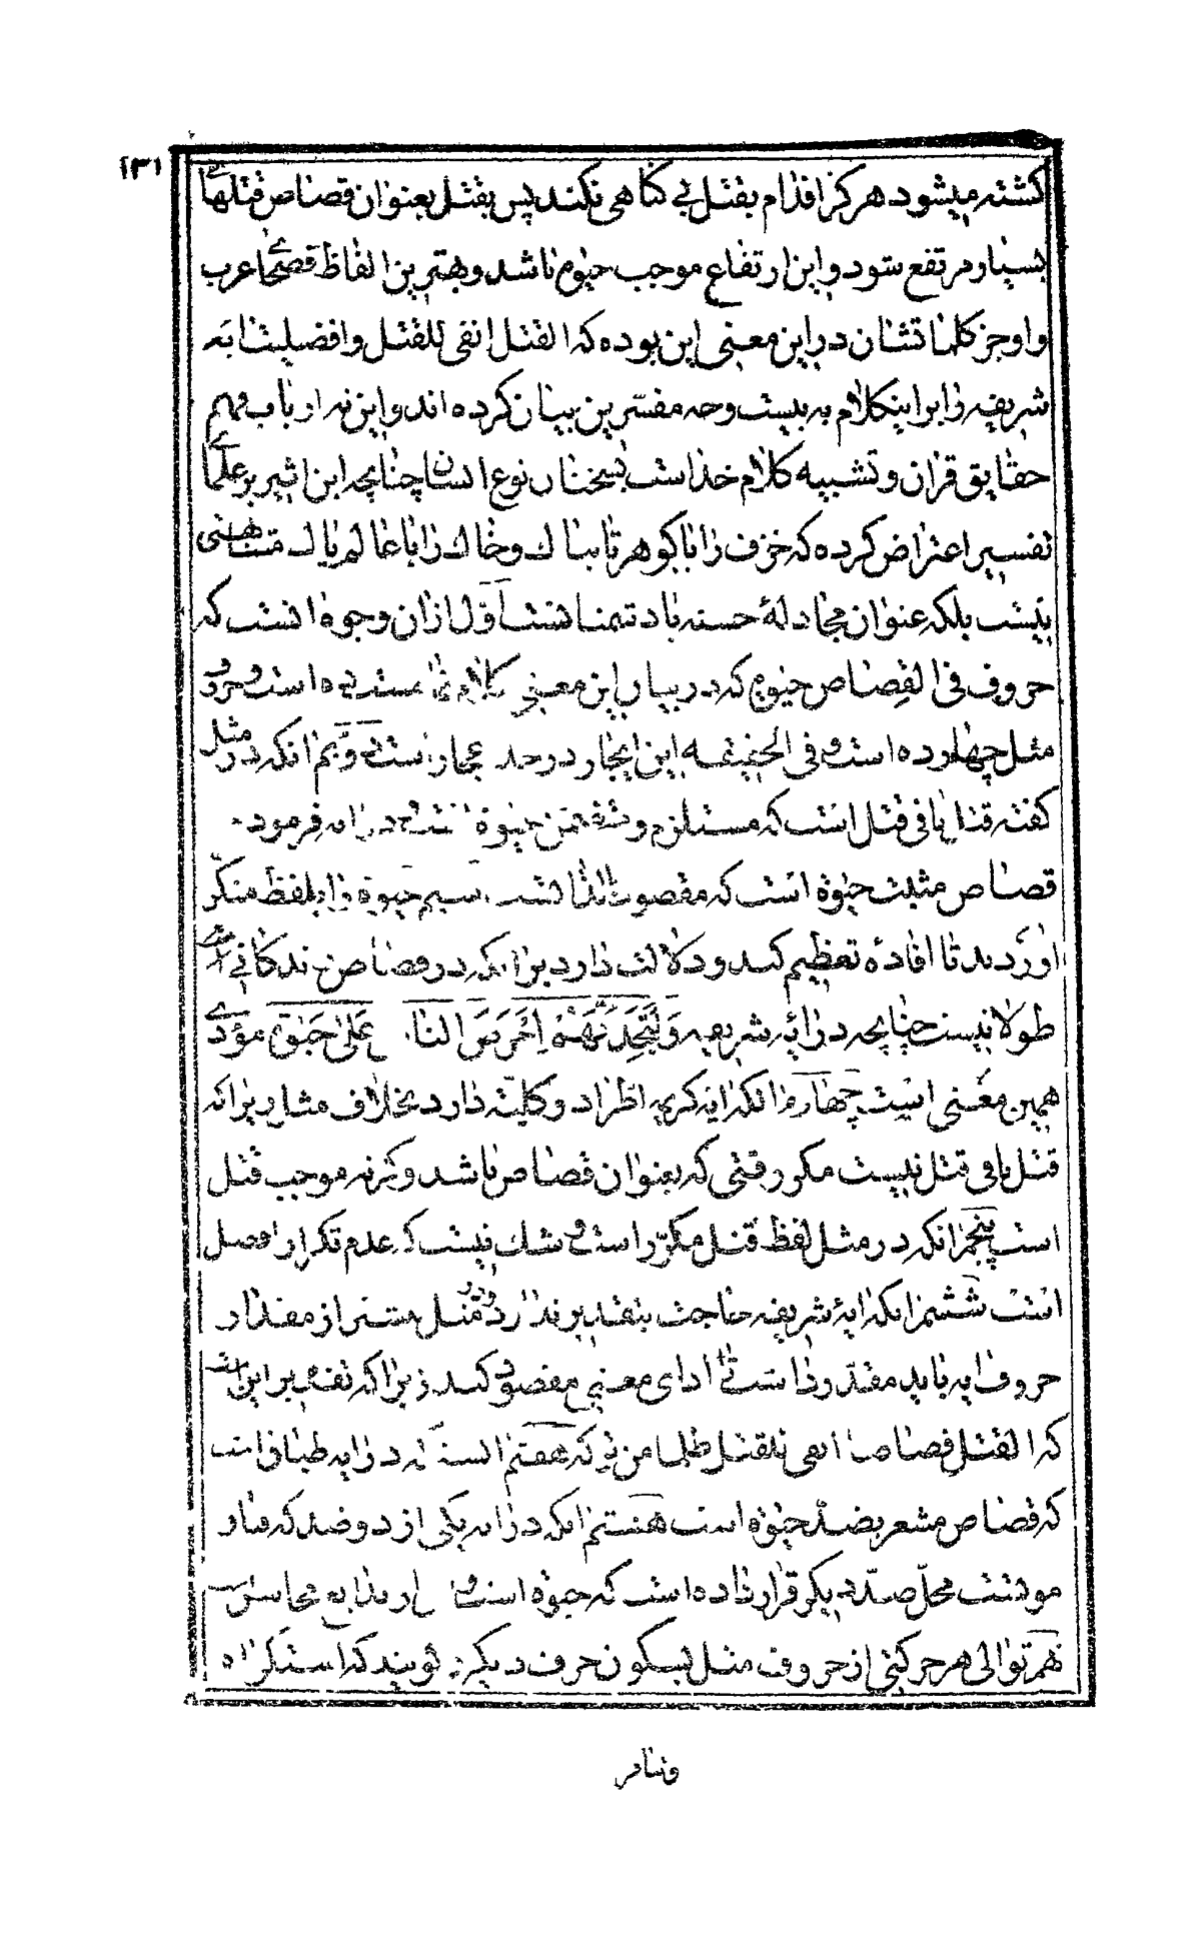 ۱۳۱
کشته میشود هرکز اقدام بقتل بی کناهی نکند پس بقتل بعنوان قصاص قتلهای
بسیار مرتفع شود و این ارتفاع موجب حیوة باشد و بهترین الفاظ فصحای عرب
و اوجز کلماتشان در این معنی این بوده که القتل انفی للقتل و افضلیت ایه
شریفه را بر اینکلام به بیست وجه مفسرین بیان کرده اند و این نه از باب فهم
حقایق قران و تشبیه کلام خداست بسخنان نوع انسان چنانچه ابن اثیر بر علمای
تفسیر اعتراض کرده که خزف را با کوهر تابناك و خاك را با عالم پاك مشابهتی
نیست بلکه عنوان مجادلهٔ حسنه باد تیمنا نست اول ازان وجوه انست که
حروف فی القصاص حیوة که در بیان این معنی کلام است ده است و حروف
مثل چهارده است و فی الحقیقه این ایجاز در حد اعجاز است دویم انکه در مثل
کفته قتل نافی قتل است که مستلزم و متضمن حیوة نیست و در ایه فرموده
قصاص مثبت حیوة است که مقصود بالذات است سیم حیوة را بلفظ منکر
اوردند تا افادهٔ تعظیم کند و دلالت دارد بر انکه در قصاص زندکانی
طولانیست چنانچه در ایه شریفه وَلَتَجِدَنَّهُمْ اَحْرَصَ النّاسِ عَلی حَیوةٍ مؤدی
همین معنی است چهارم انکه ایه کریمه اطراد و کلیت دارد بخلاف مثل زیرا که
قتل نافی قتل نیست مکر وقتی که بعنوان قصاص باشد و کرنه موجب قتل
است پنجم انکه در مثل لفظ قتل مکرر است و شك نیست که عدم تکرار افضل
است ششم انکه ایهٔ شریفه حاجت بتقدیر ندارد و در مثل بیشتر از مقدار
حروف ایه باید مقدر داشت تا ادای معنی مقصود کند زیرا که تقدیر این است
که القتل قصاصا انفی للقتل ظلما من ترکه هفتم انست که در ایه طباق است
که قصاص مشعر بضد حیوة است هشتم انکه در ایه یکی از دو ضد که فنا و
موتست محل ضد دیکر قرار داده است که حیوة است و این از بدایع محاسن
نهم توالی هر حرکتی از حروف مثل بسکون حرف دیکر کویند که استکراه
و تنافر